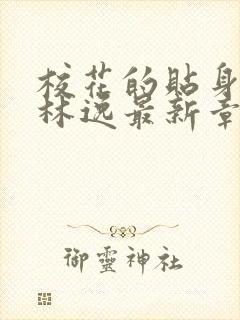 校花的贴身
林逸最新章
御靈神社